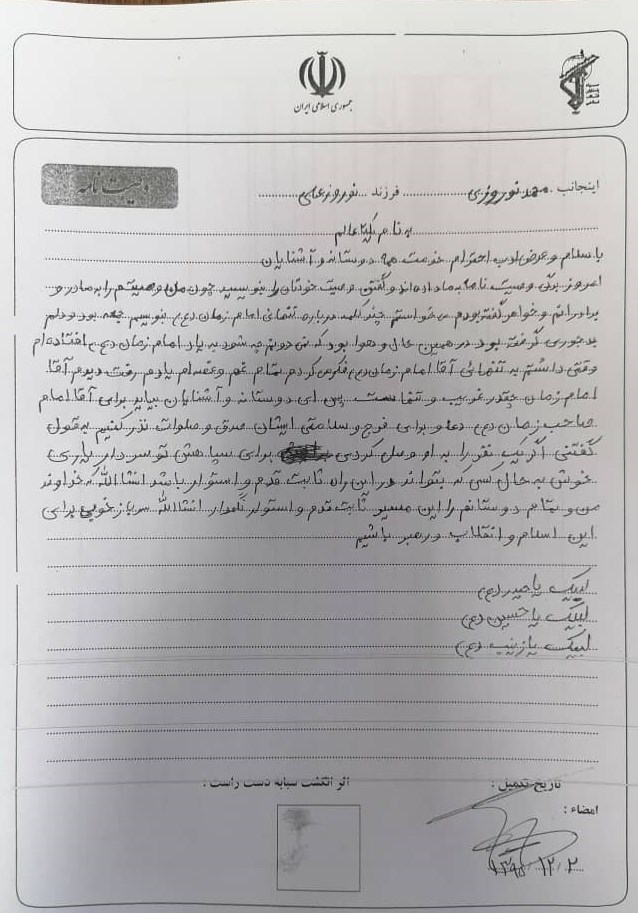 جمهوری اسلامی ایران
وصیت نامه
اینجانب محمد نوروزی فرزند نوروزعلی
به نام یکتا عالم
با سلام و عرض ادب احترام خدمت همه دوستان و آشنایان
امروز برگه وصیت نامه به ما داده اند و گفتن وصیت خودتان را بنویسید چون من وصیتم را به مادر و
برادرانم و خواهر گفته بودم می خواستم چند کلمه درباره تنهائی امام زمان (عج) بنویسم جمعه بود و دلم
بدجوری گرفته بود در همین حال و هوا بود که نمی دونم چه شود به یاد امام زمان (عج) افتاده ام
وقتی داشتم به تنهائی آقا امام زمان (عج) فکر می کردم تمام غم و غصه ام یادم رفت دیدم آقا
امام زمان چقدر غریب و تنهاست پس ای دوستان و آشنایان بیایر برای آقا امام
صاحب زمان (عج) دعا و برای فرج و سلامتی ایشان صدق و صلوات نذر کنیم به قول
گفتنی اگر یک نفر را به او وصل کردی برای سپاهش تو سردار یاری
خوش به حال کسی که بتواند در این راه ثابت قدم و استوار باشد انشاالله که خداوند
من و تمام دوستانم را این مسیر ثابت قدم و استوار نگهدار انشاالله سرباز خوبی برای
این اسلام و انقلاب و رهبر باشیم
لبیک یا حیدر (ع)
لبیک یا حسین (ع)
لبیک یا زینب (ع)
تاریخ تکمیل : اثر انگشت سبابه دست راست :
امضاء :